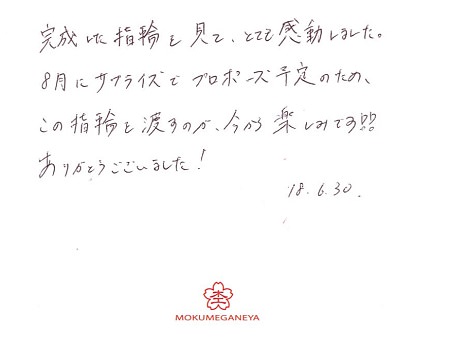 完成した指輪を見て、とても感動しました。
8月にサプライズでプロポーズ予定のため、
この指輪を渡すのが、今から楽しみです!!
ありがとうございました!
18.6.30.
杢
MOKUMEGANEYA